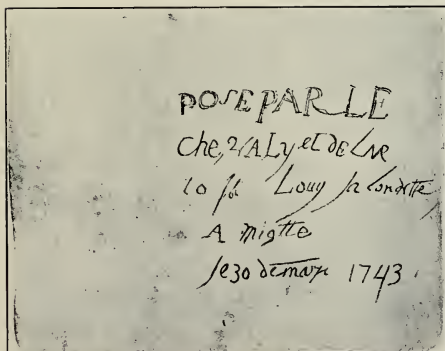 POSE PAR LE
ChevALyet DE LAR
to Louy la Londette
A miotte
le 30 de mars 1743